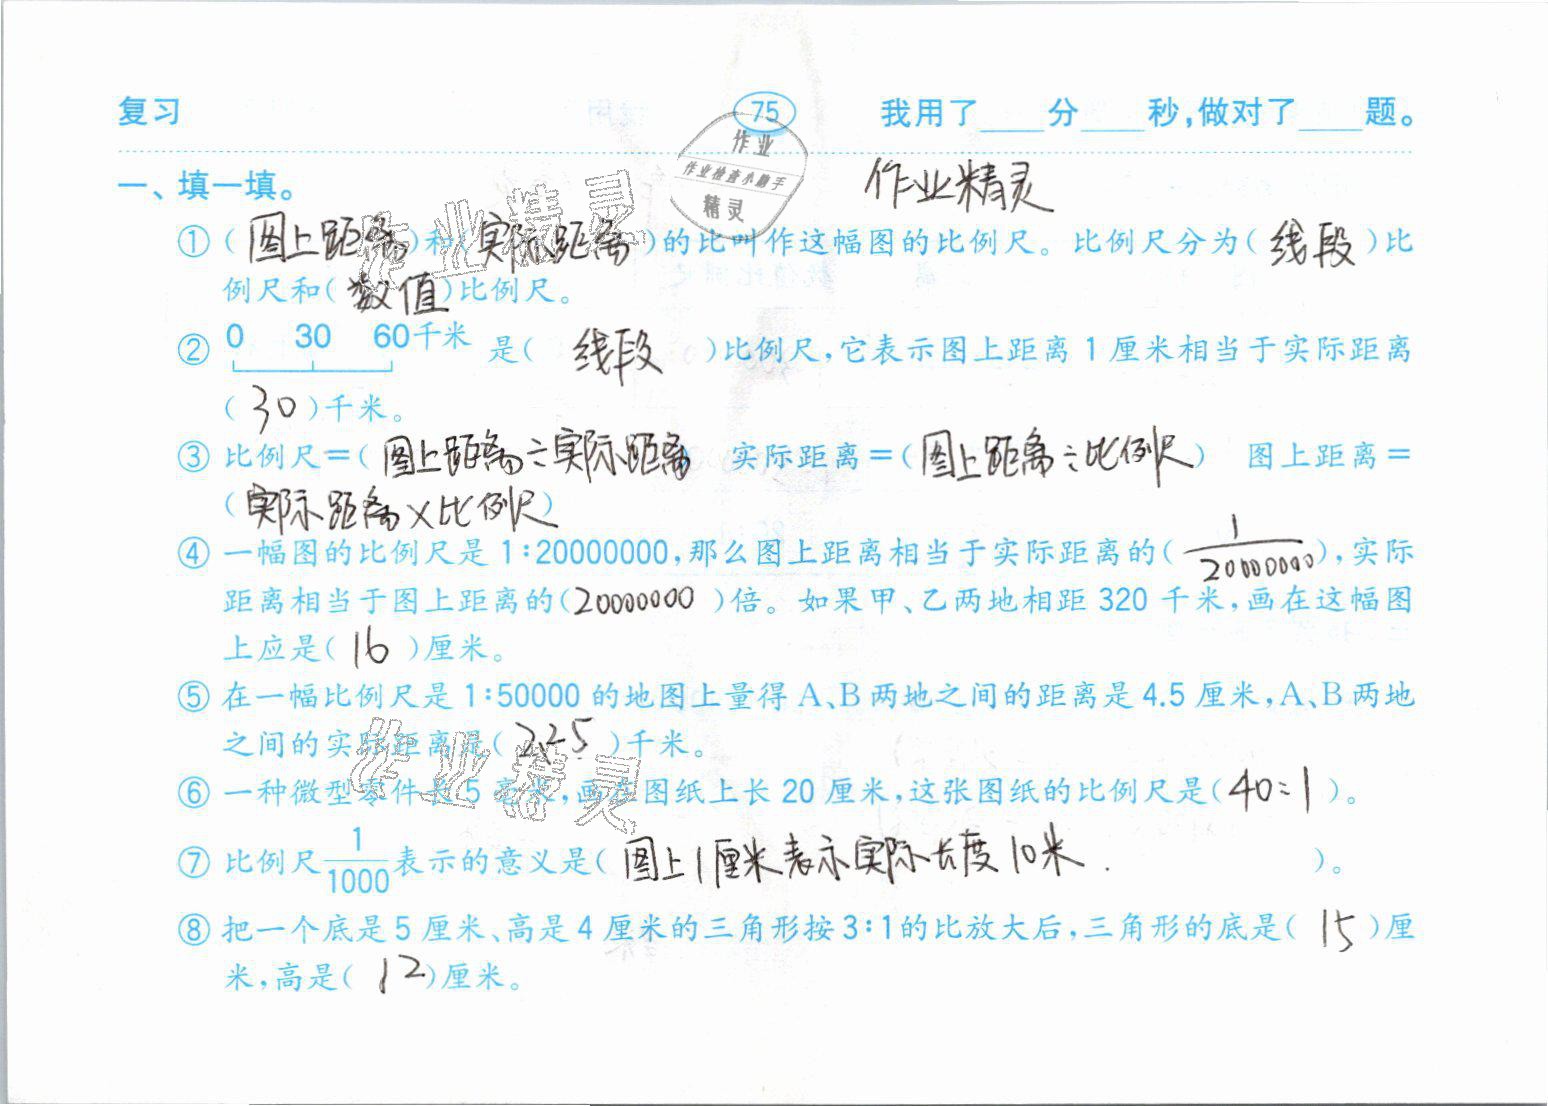 复习 75 我用了____分____秒,做对了____题。
作业
作业检查小助手
精灵
一、填一填。 作业精灵
①(图上距离)和(实际距离)的比叫作这幅图的比例尺。比例尺分为(线段)比
例尺和(数值)比例尺。
② 0 30 60千米 是(线段)比例尺,它表示图上距离1厘米相当于实际距离
(30)千米。
③ 比例尺=(图上距离÷实际距离 实际距离=(图上距离÷比例尺) 图上距离=
(实际距离×比例尺)
④ 一幅图的比例尺是1:20000000,那么图上距离相当于实际距离的(1/20000000),实际
距离相当于图上距离的(20000000)倍。如果甲、乙两地相距320千米,画在这幅图
上应是(16)厘米。
⑤ 在一幅比例尺是1:50000的地图上量得A、B两地之间的距离是4.5厘米,A、B两地
之间的实际距离是(2.25)千米。
⑥ 一种微型零件长5毫米,画在图纸上长20厘米,这张图纸的比例尺是(40:1)。
⑦ 比例尺1/1000表示的意义是(图上1厘米表示实际长度10米.)。
⑧ 把一个底是5厘米、高是4厘米的三角形按3:1的比放大后,三角形的底是(15)厘
米,高是(12)厘米。
作业精灵
作业精灵